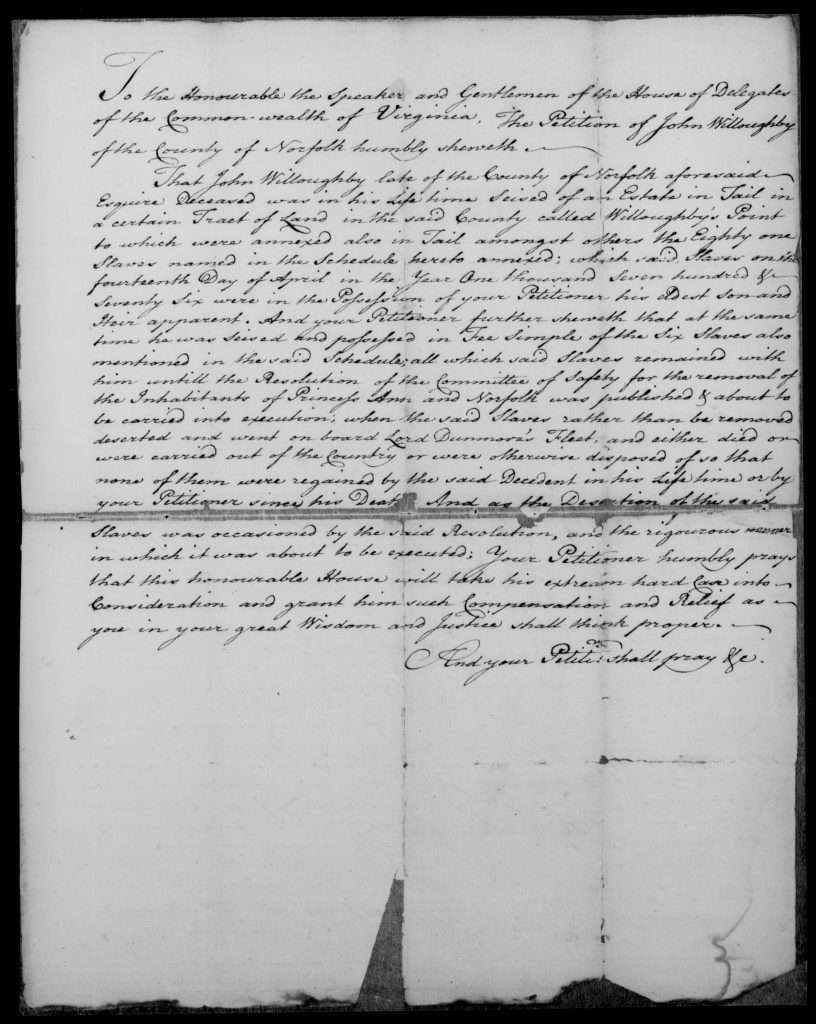 To the Honourable the Speaker and Gentlemen of the House of Delegates
of the Common-wealth of Virginia. The Petition of John Willoughby
of the County of Norfolk humbly sheweth
That John Willoughby late of the County of Norfolk aforesaid
Esquire Deceased was in his Life time Seised of an Estate in Tail in
a certain Tract of Land in the said County called Willoughby's Point
to which were annexed also in Tail amongst others the Eighty one
Slaves named in the Schedule hereto annexed; which said Slaves on the
fourteenth Day of April in the Year One thousand Seven hundred &
Seventy Six were in the Possession of your Petitioner his eldest son and
Heir apparent. And your Petitioner further sheweth that at the same
time he was Seised and possessed in Fee Simple of the Six Slaves also
mentioned in the said Schedule; all which said Slaves remained with
him untill the Resolution of the Committee of Safety for the removal of
the Inhabitants of Princess Ann and Norfolk was published & about to
be carried into execution; when the said Slaves rather than be removed
deserted and went on board Lord Dunmore's Fleet, and either died or
were carried out of the Country or were otherwise disposed of so that
none of them were regained by the said Decedent in his Life time or by
your Petitioner since his Death And as the Desertion of the said
Slaves was occasioned by the said Resolution, and the rigourous manner
in which it was about to be executed; Your Petitioner humbly prays
that this honourable House will take his extream hard Case into
Consideration and grant him such Compensation and Relief as
you in your great Wisdom and Justice shall think proper.
And your Petitr. shall pray &c.